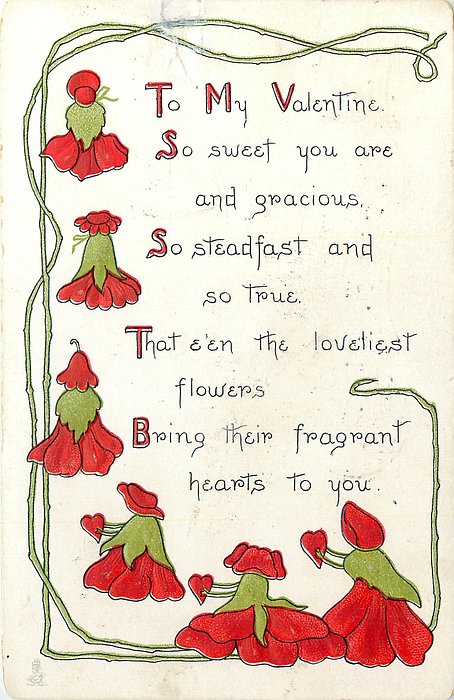 To My Valentine.
So sweet you are
and gracious,
So steadfast and
so true.
That e'en the loveliest
flowers
Bring their fragrant
hearts to you.